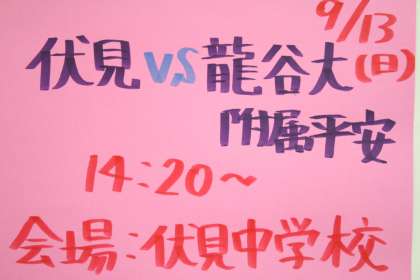 9/13
伏見 VS 龍谷大(日)
附属平安
14:20～
会場:伏見中学校